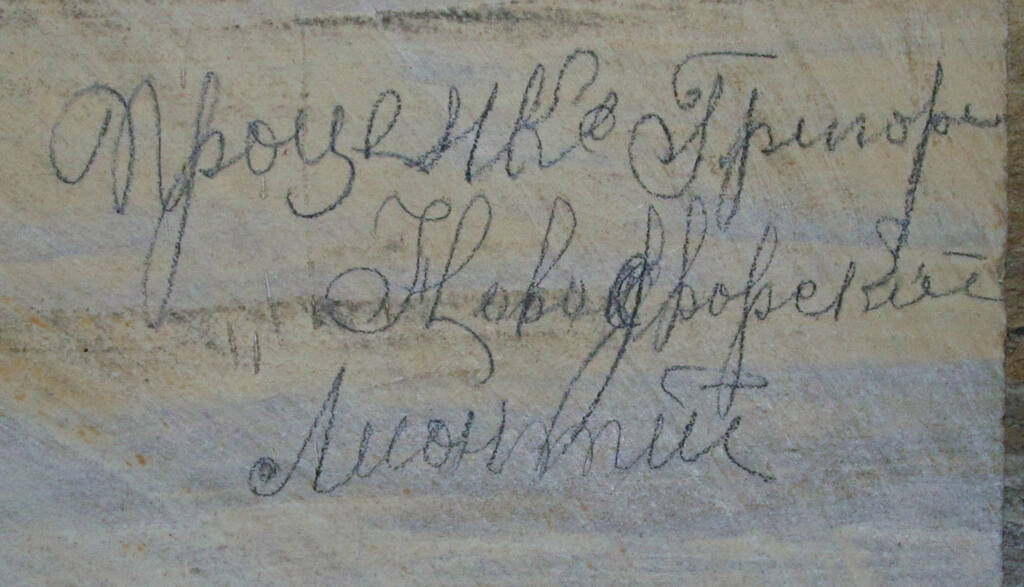 Проценко Григори
Новодворский
Лионтий